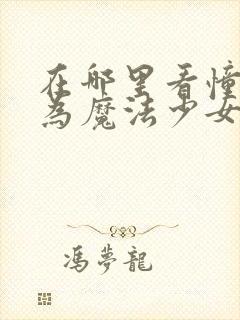 在哪里看憧
為魔法少女
馮夢龍